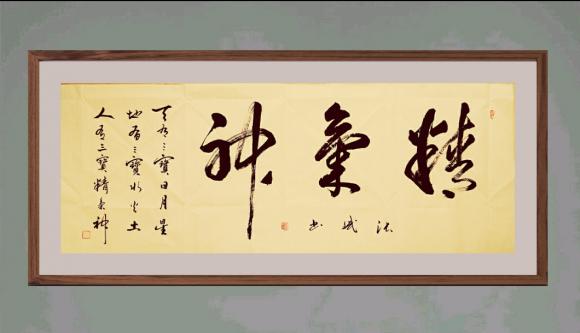 精氣神
天有三寶日月星
地有三寶水火土
人有三寶精氣神
城书